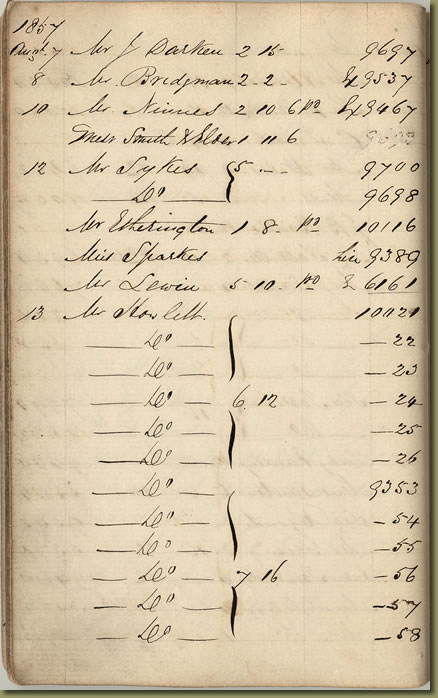 1857
Augt. 7 Mr J Darken 2 15 9697
8 Mr. Bridgman 2 - 2 - 9537
10 Mr. Ninnes 2 10 6 pd 9467
Messrs Smith & Elder 1 11 6
12 Mr Sykes { 5 - - 9700
— Do — 9698
Mr Etherington 1 8 - pd 10116
Miss Sparkes 9389
Mr Lewin 5 10 - pd & 6161
13 Mr Howlett. 10021
— Do — — 22
— Do — — 23
— Do — 6 12 — 24
— Do — — 25
— Do — — 26
— Do — 9353
— Do — — 54
— Do — — 55
— Do — 7 16 — 56
— Do — — 57
— Do — — 58